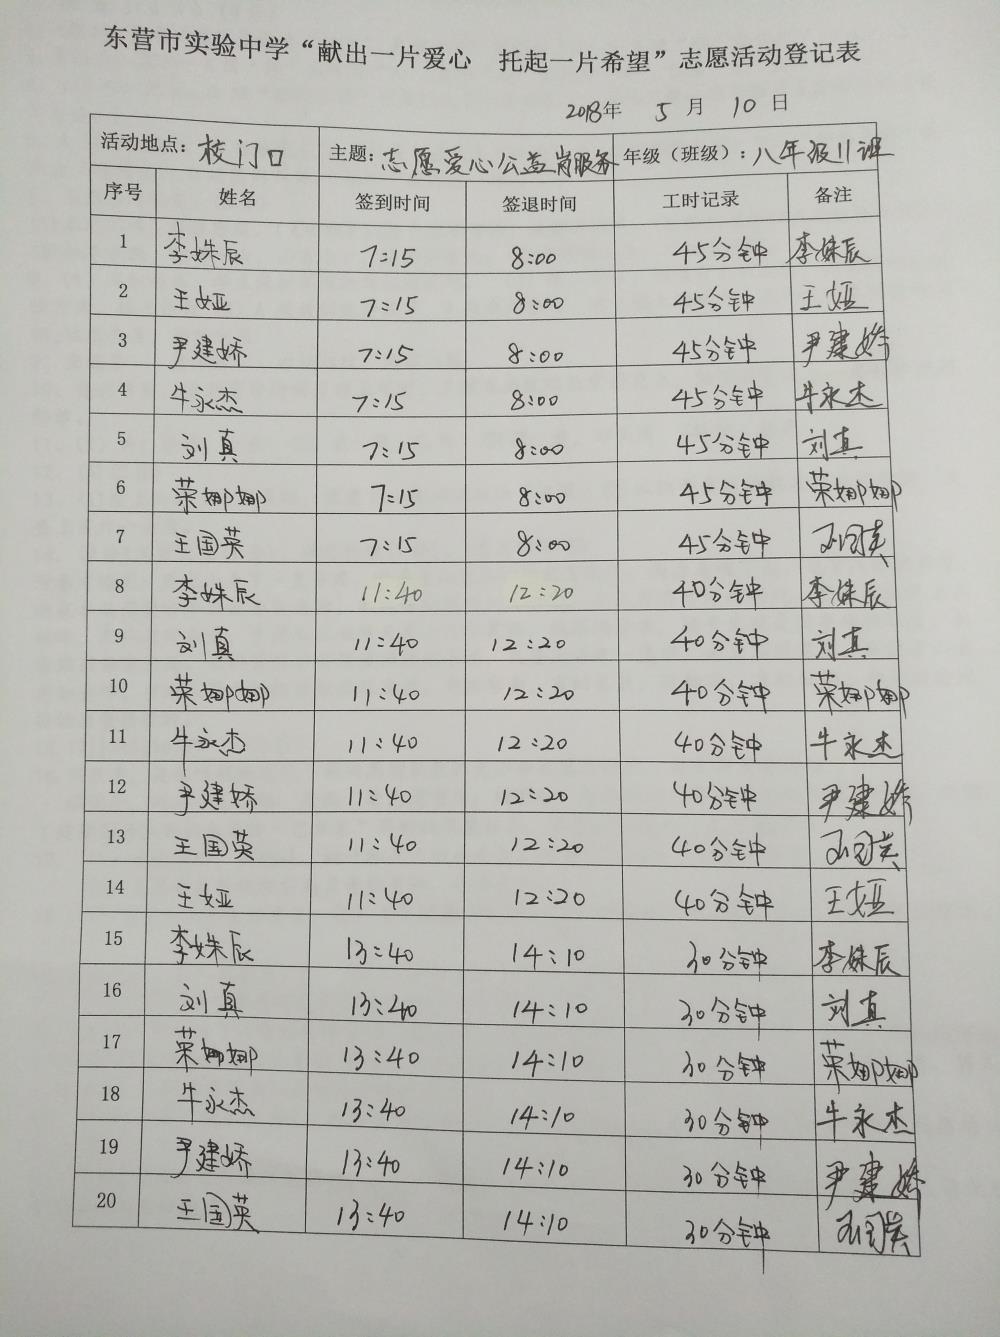 东营市实验中学“献出一片爱心 托起一片希望”志愿活动登记表
2018年 5 月 10 日
活动地点：校门口 主题：志愿爱心公益岗服务 年级（班级）：八年级11班
序号 姓名 签到时间 签退时间 工时记录 备注
1 李姝辰 7:15 8:00 45分钟 李姝辰
2 王娅 7:15 8:00 45分钟 王娅
3 尹建娇 7:15 8:00 45分钟 尹建娇
4 牛永杰 7:15 8:00 45分钟 牛永杰
5 刘真 7:15 8:00 45分钟 刘真
6 荣娜娜 7:15 8:00 45分钟 荣娜娜
7 王国英 7:15 8:00 45分钟 王国英
8 李姝辰 11:40 12:20 40分钟 李姝辰
9 刘真 11:40 12:20 40分钟 刘真
10 荣娜娜 11:40 12:20 40分钟 荣娜娜
11 牛永杰 11:40 12:20 40分钟 牛永杰
12 尹建娇 11:40 12:20 40分钟 尹建娇
13 王国英 11:40 12:20 40分钟 王国英
14 王娅 11:40 12:20 40分钟 王娅
15 李姝辰 13:40 14:10 30分钟 李姝辰
16 刘真 13:40 14:10 30分钟 刘真
17 荣娜娜 13:40 14:10 30分钟 荣娜娜
18 牛永杰 13:40 14:10 30分钟 牛永杰
19 尹建娇 13:40 14:10 30分钟 尹建娇
20 王国英 13:40 14:10 30分钟 王国英